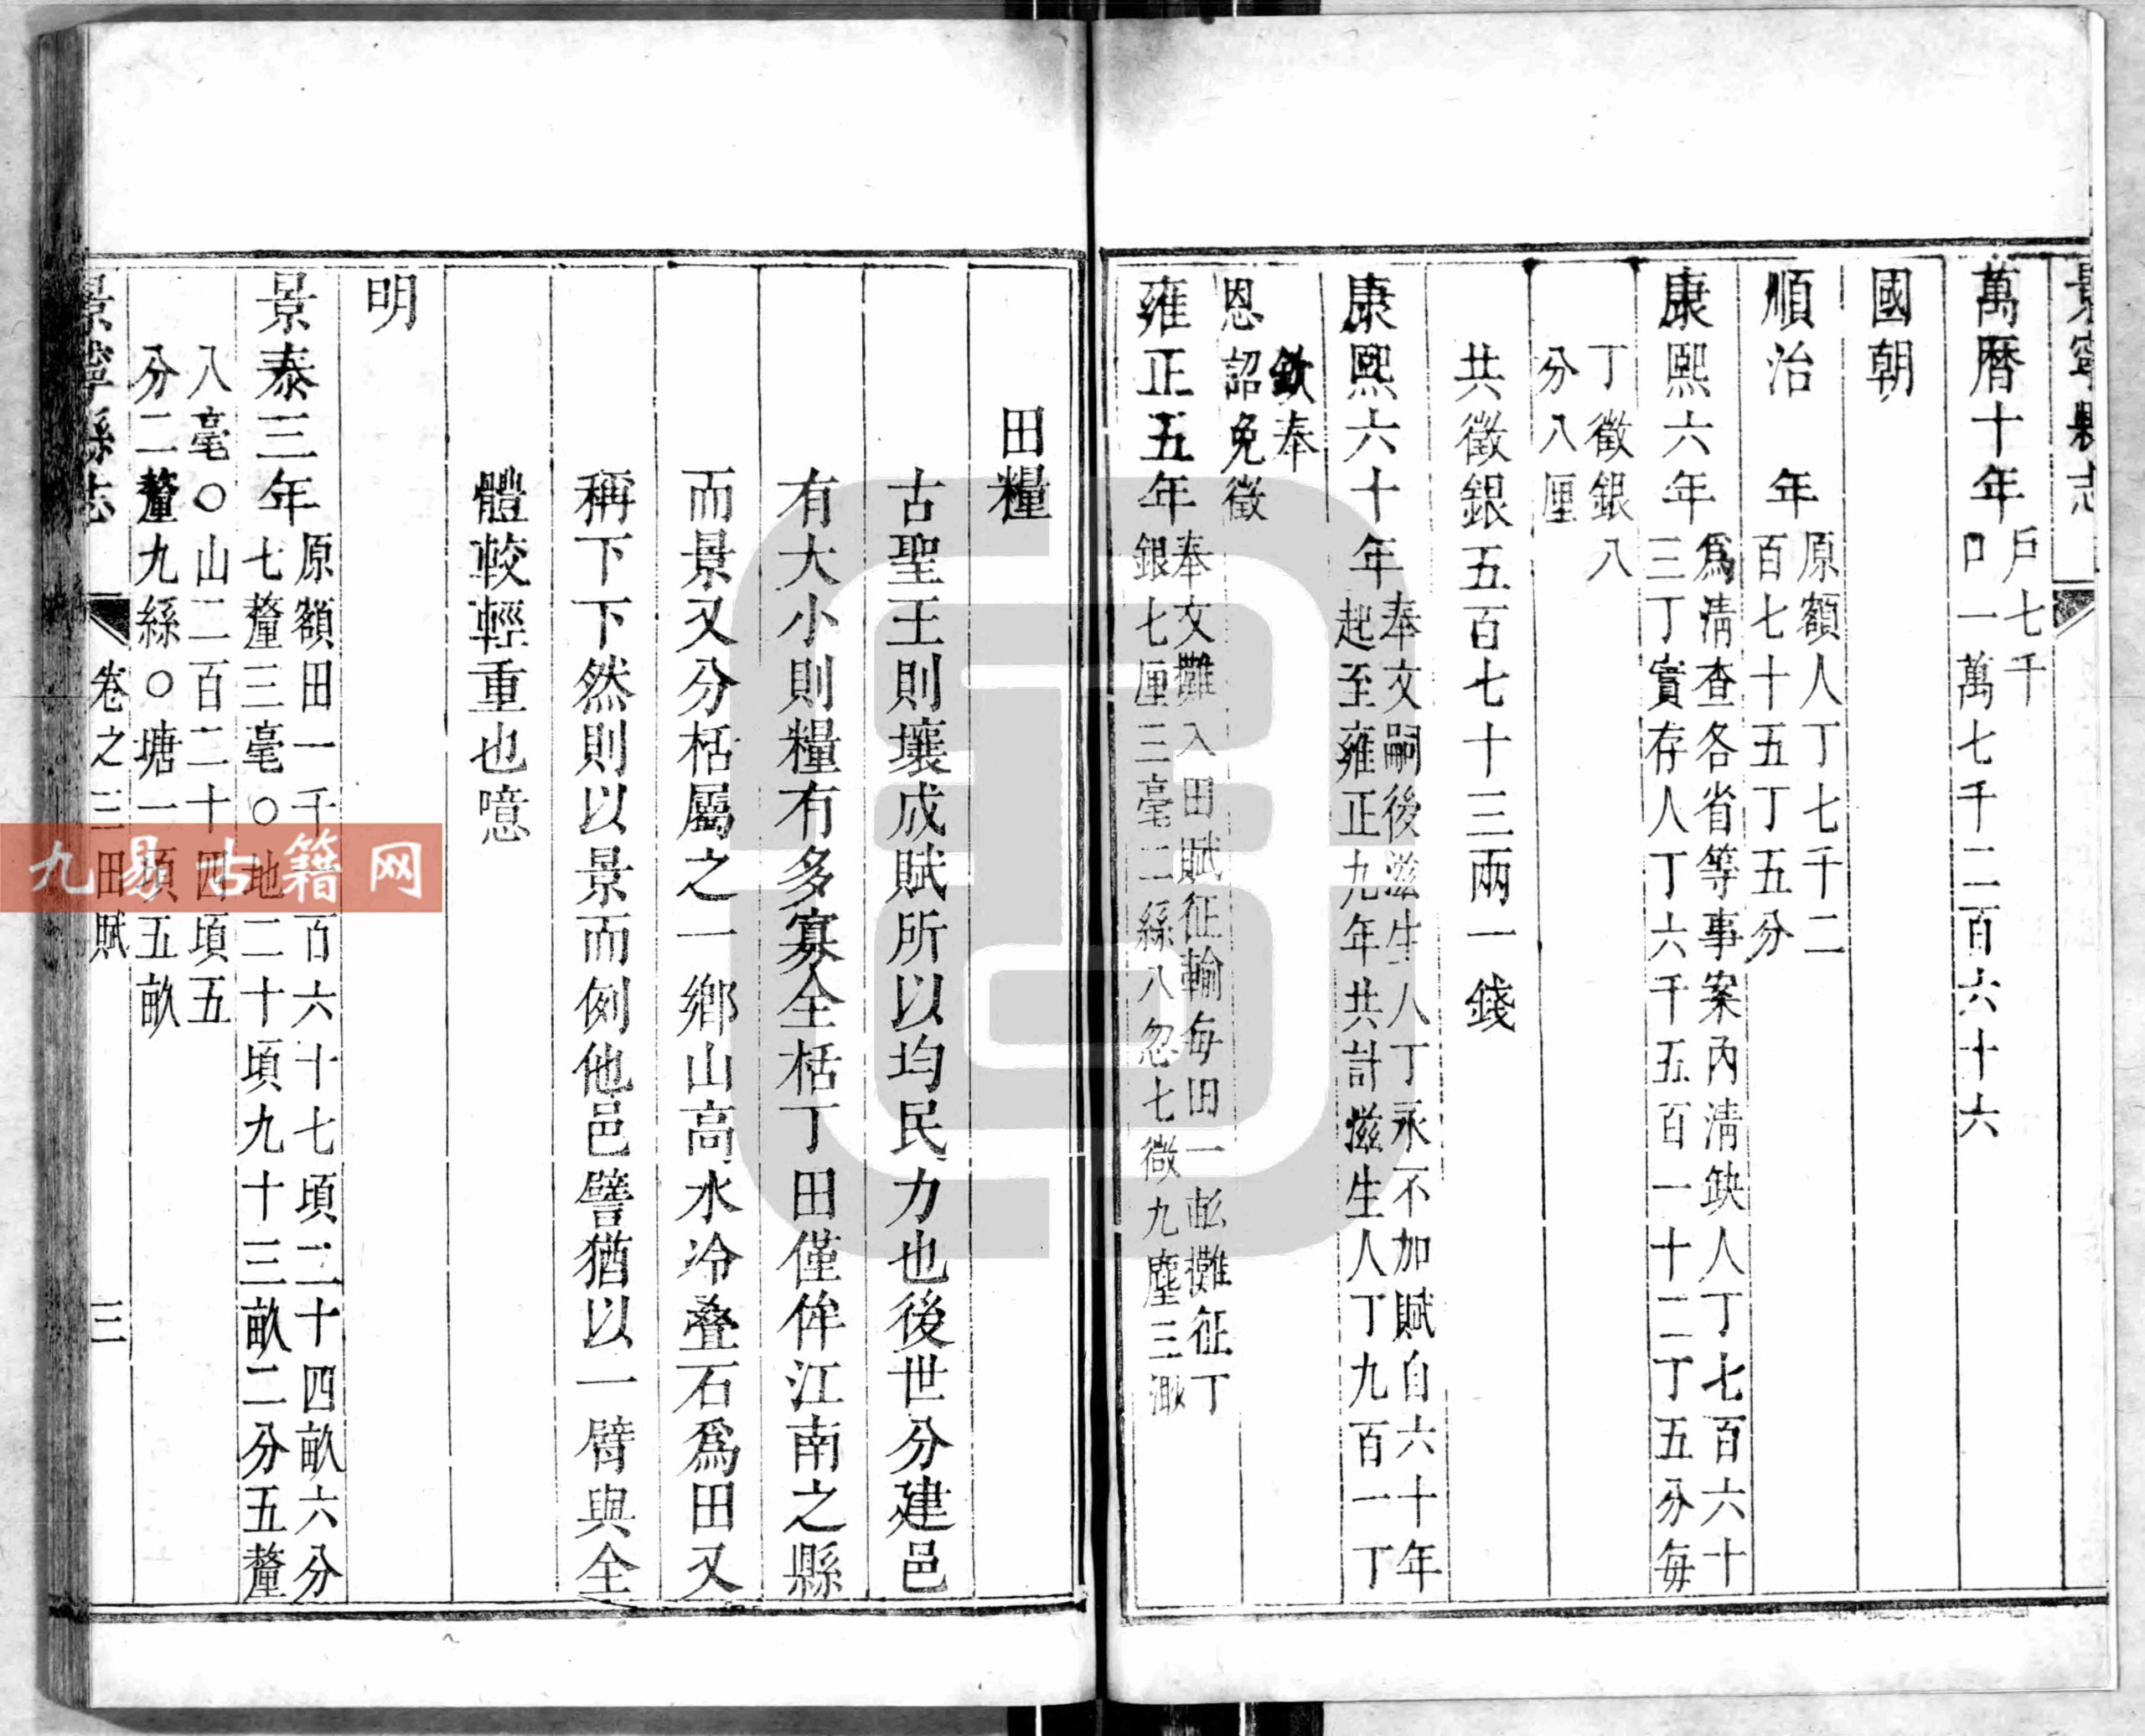 景寧縣志
萬曆十年戶七千
口一萬七千二百六十六
國朝
順治 年原額人丁七千二
百七十五丁五分
康熙六年爲清查各省等事案內清缺人丁七百六十
三丁實存人丁六千五百一十二丁五分每
丁徵銀八
分八厘
共徵銀五百七十三兩一錢
康熙六十年奉文嗣後滋生人丁永不加賦自六十年
起至雍正九年共計滋生人丁九百一丁
欽奉
恩詔免徵
雍正五年奉文攤入田賦征輸每田一畝攤征丁
銀七厘三毫二絲八忽七微九塵三渺
田糧
古聖王則壤成賦所以均民力也後世分建邑
有大小則糧有多寡全栝丁田僅侔江南之縣
而景又分栝屬之一鄉山高水冷叠石爲田又
稱下下然則以景而例他邑譬猶以一臂與全
體較輕重也噫
明
景泰三年原額田一千百六十七頃二十四畝六分
七釐三毫○地二十頃九十三畝二分五釐
八毫○山二百二十四頃五
分二釐九絲○塘一頃五畝
景寧縣志 卷之三田賦 三
九易古籍网